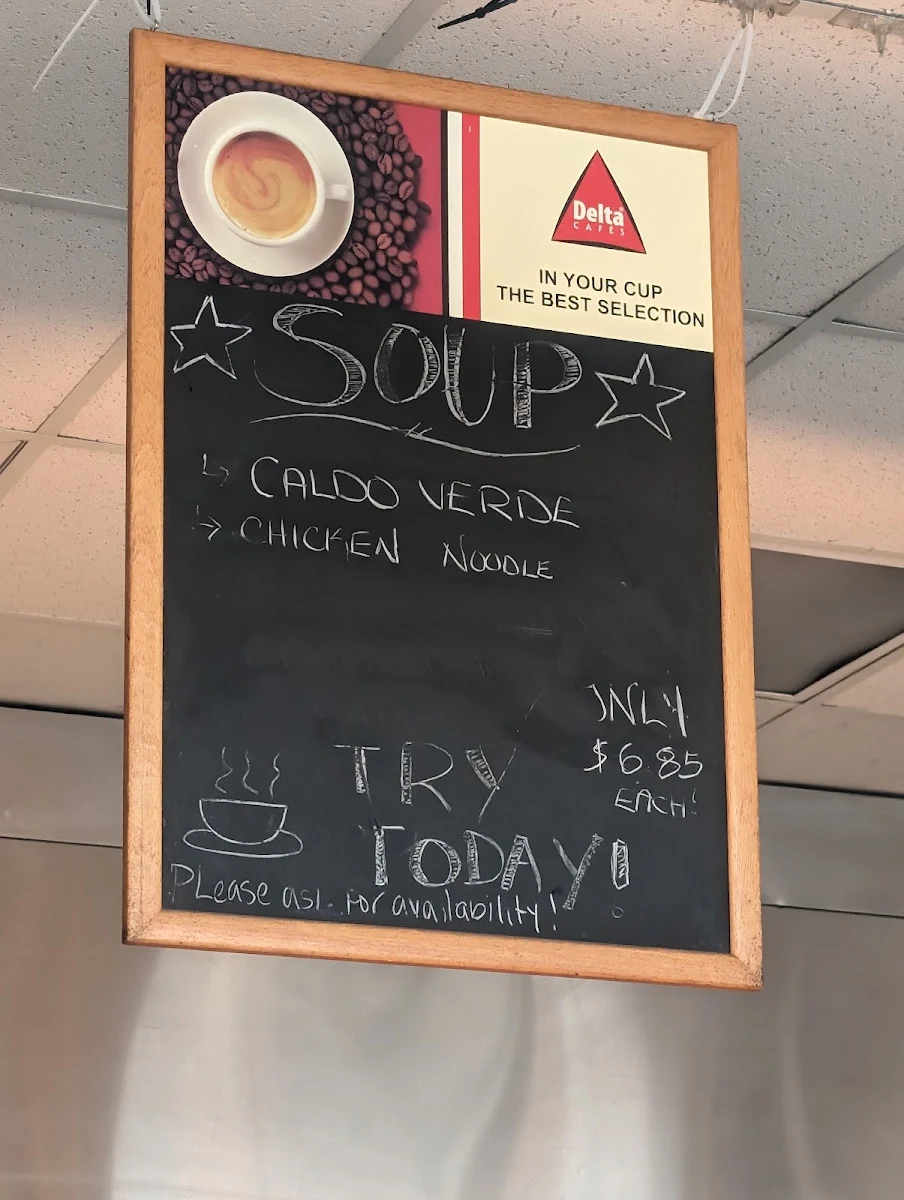 Delta
CAFÉS
IN YOUR CUP
THE BEST SELECTION
SOUP
CALDO VERDE
CHICKEN NOODLE
ONLY
$6.85
EACH!
TRY
TODAY!
PLease ask for availability!